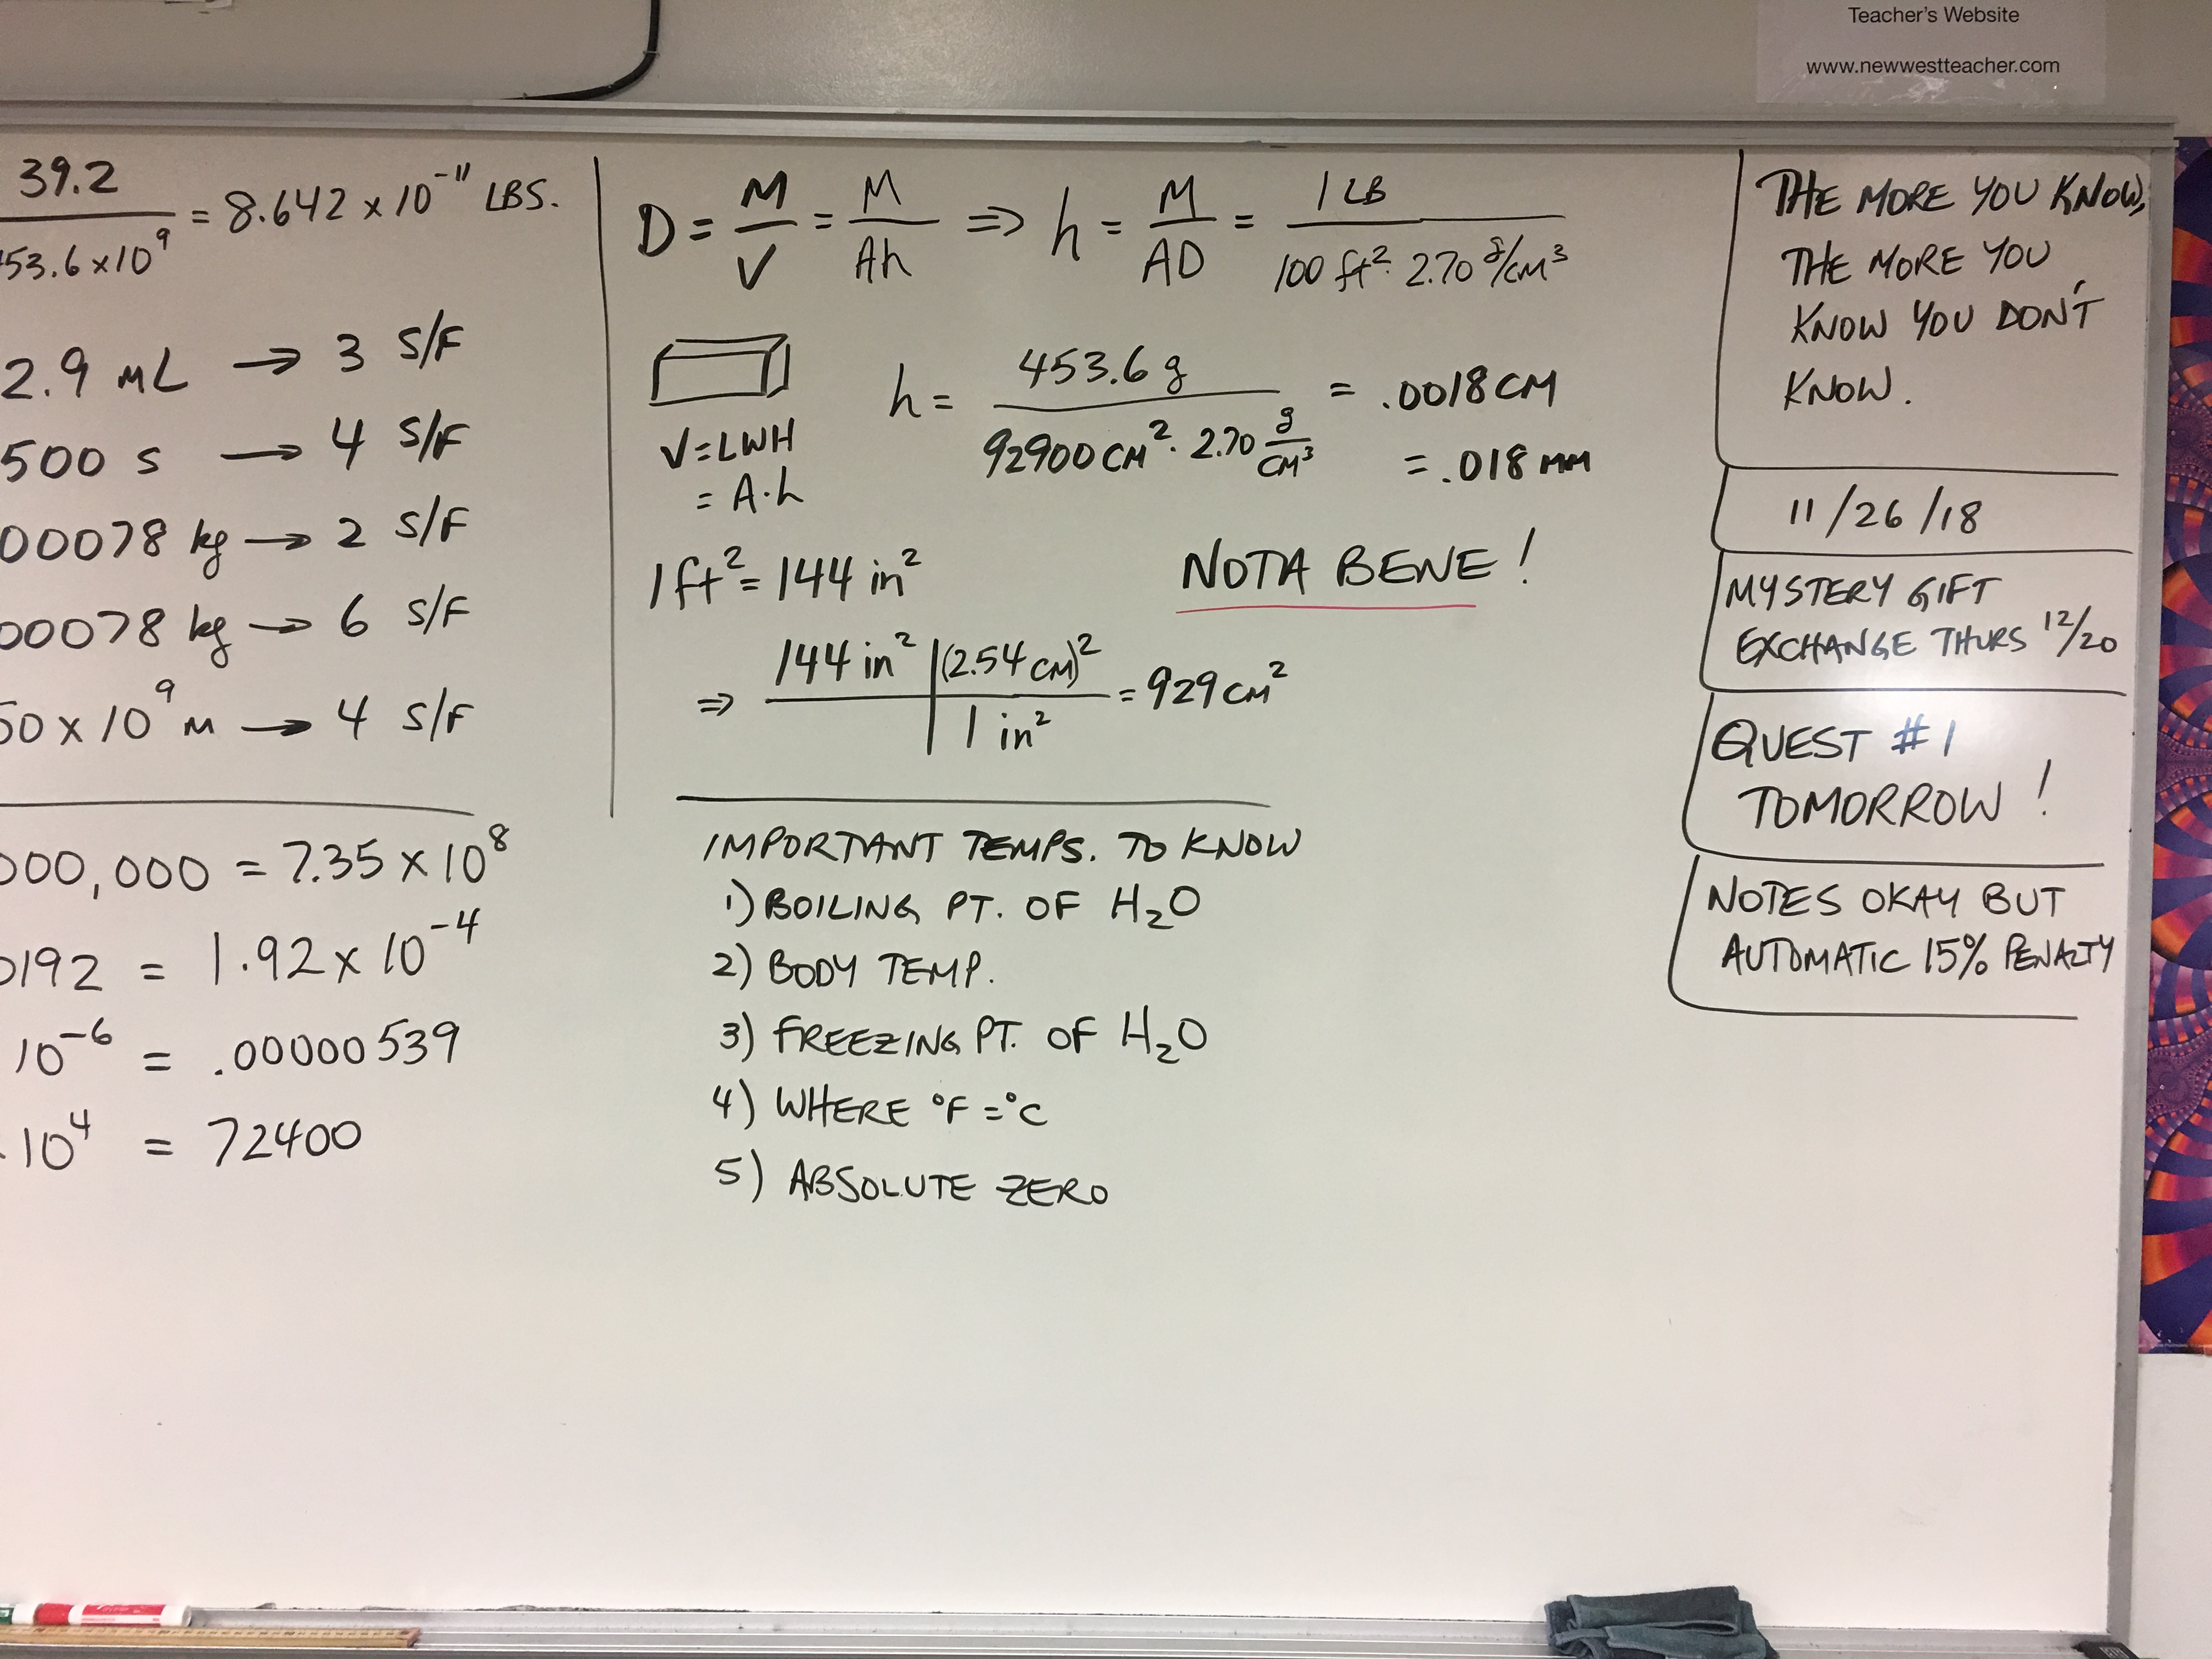 Teacher's Website
www.newwestteacher.com
39.2
53.6 x 10⁹
= 8.642 x 10⁻¹¹ LBS.
2.9 mL → 3 S/F
500 s → 4 S/F
00078 kg → 2 S/F
00078 kg → 6 S/F
50 x 10⁹ M → 4 S/F
000,000 = 7.35 x 10⁸
0192 = 1.92 x 10⁻⁴
10⁻⁶ = .00000539
10⁴ = 72400
D = M/V = M/Ah ⇒ h = M/AD = 1 LB / 100 ft² · 2.70 g/cm³
V = LWH
= A·h
h = 453.6 g / 92900 CM² · 2.70 g/CM³ = .0018 CM
= .018 MM
1 ft² = 144 in²
NOTA BENE!
⇒ 144 in² | (2.54 CM)² / 1 in² = 929 CM²
IMPORTANT TEMPS. TO KNOW
1) BOILING PT. OF H₂O
2) BODY TEMP.
3) FREEZING PT. OF H₂O
4) WHERE °F = °C
5) ABSOLUTE ZERO
THE MORE YOU KNOW,
THE MORE YOU
KNOW YOU DON'T
KNOW.
11/26/18
MYSTERY GIFT
EXCHANGE THURS 12/20
QUEST #1
TOMORROW!
NOTES OKAY BUT
AUTOMATIC 15% PENALTY